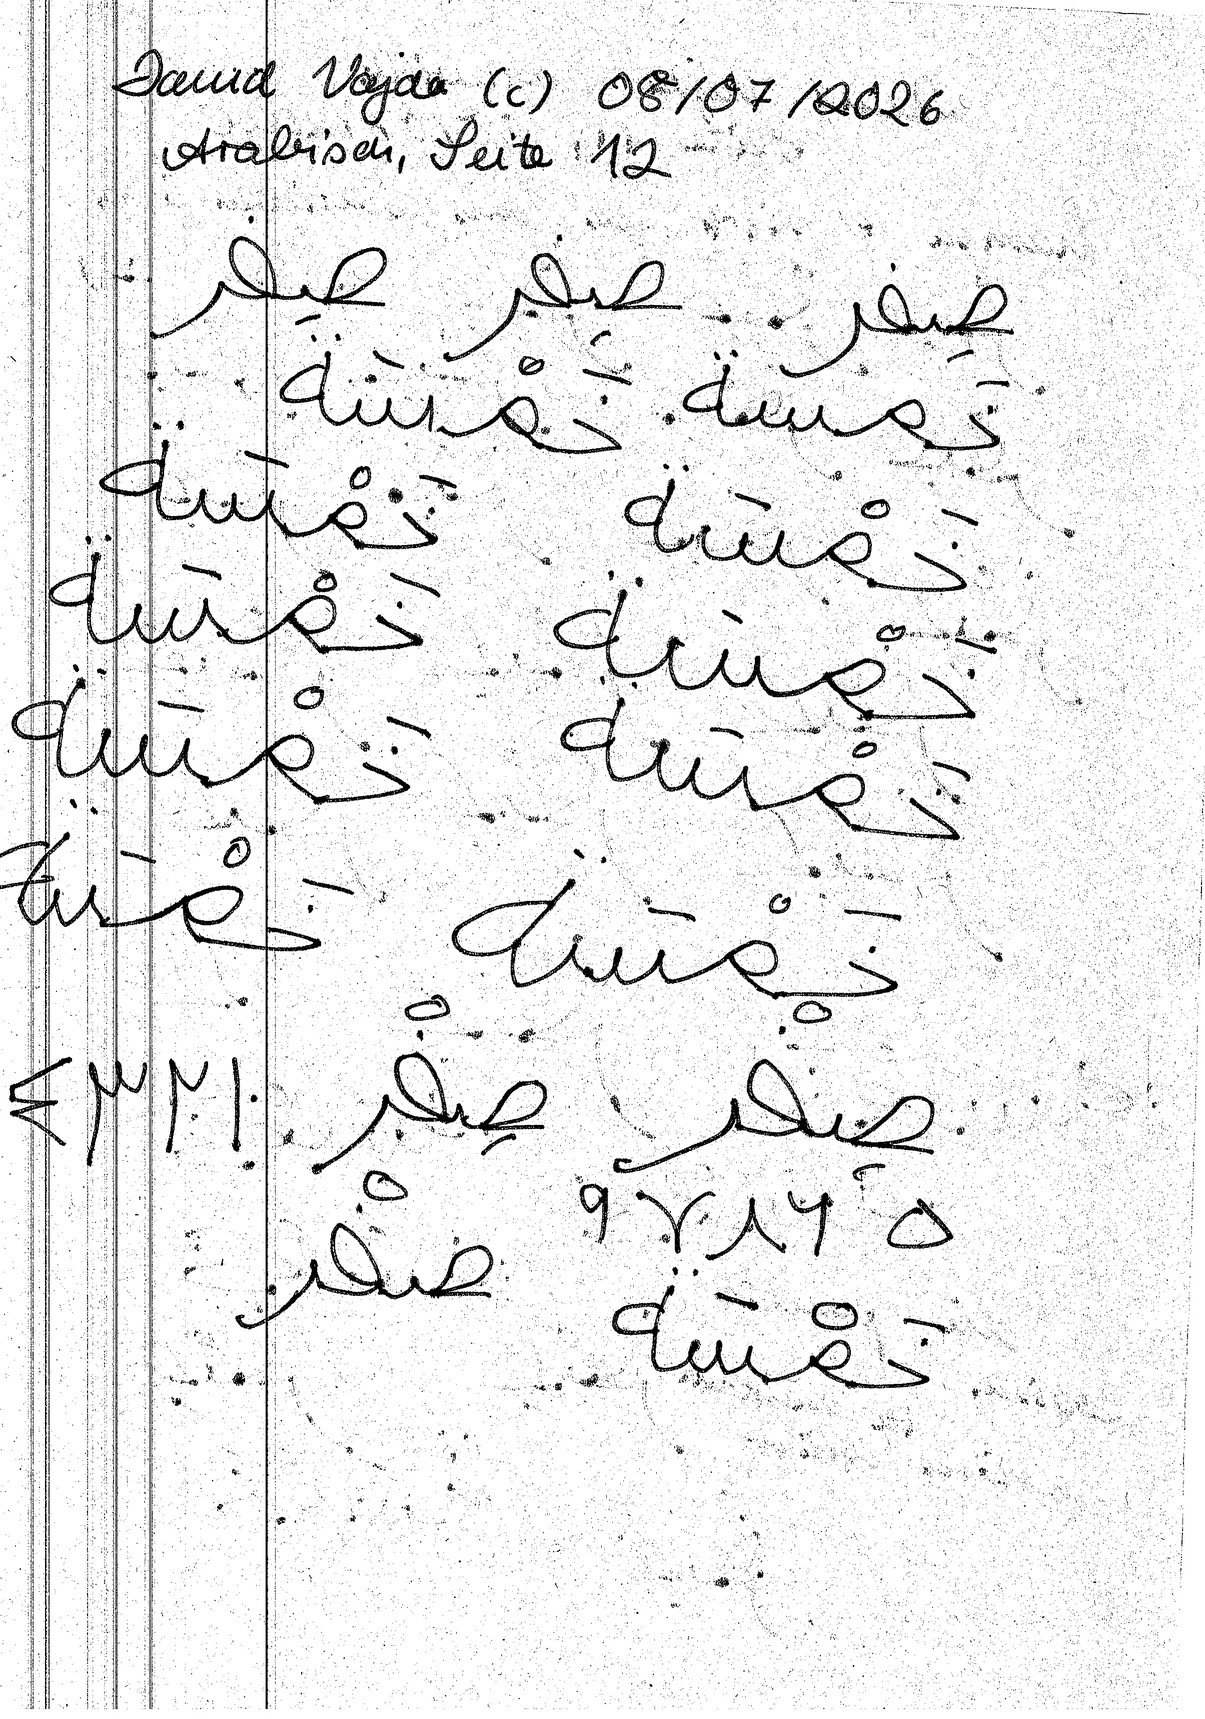 David Vajda (c) 08/07/2026
Arabisch, Seite 12
صِفر صِفر صِفر
خَمسة خَمْسَة
خَمْسَة خَمْسَة
خَمْسَة خَمْسَة
خَمْسَة خَمْسَة
خَمْسَة خَمْسَة
صِفْر صِفْر ١ ٢ ٣ ٤
٥ ٦ ٨ ٧ ٩
صفْر
خَمْسَة